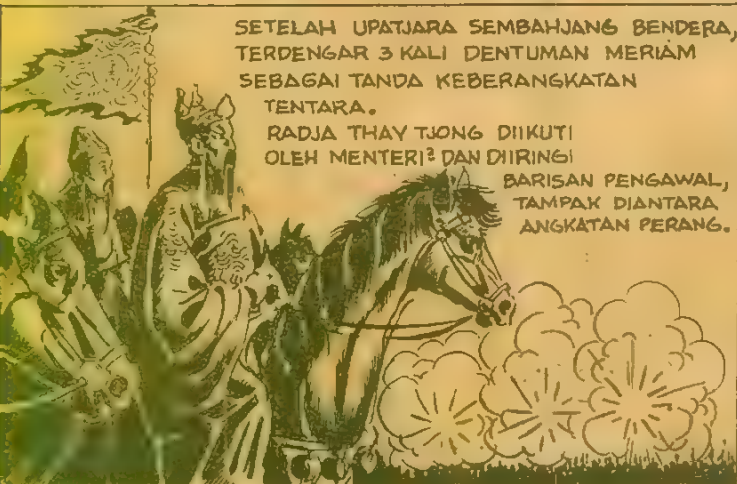 SETELAH UPATJARA SEMBAHJANG BENDERA,
TERDENGAR 3 KALI DENTUMAN MERIAM
SEBAGAI TANDA KEBERANGKATAN
TENTARA.
RADJA THAY TJONG DIIKUTI
OLEH MENTERI² DAN DIIRINGI
BARISAN PENGAWAL,
TAMPAK DIANTARA
ANGKATAN PERANG.